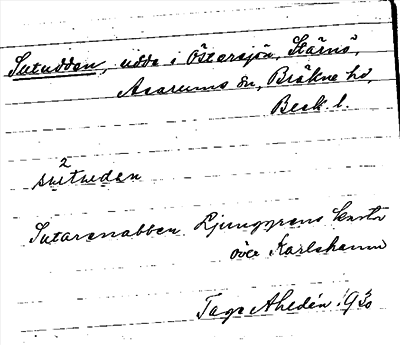 Sutudden, udde i Östersjön, Stärnö,
Asarums sn, Bräkne hd,
Blek. l.
sú²tuden
Sutarenabben Ljunggrens karta
över Karlshamn
Tage Ahldén 1930